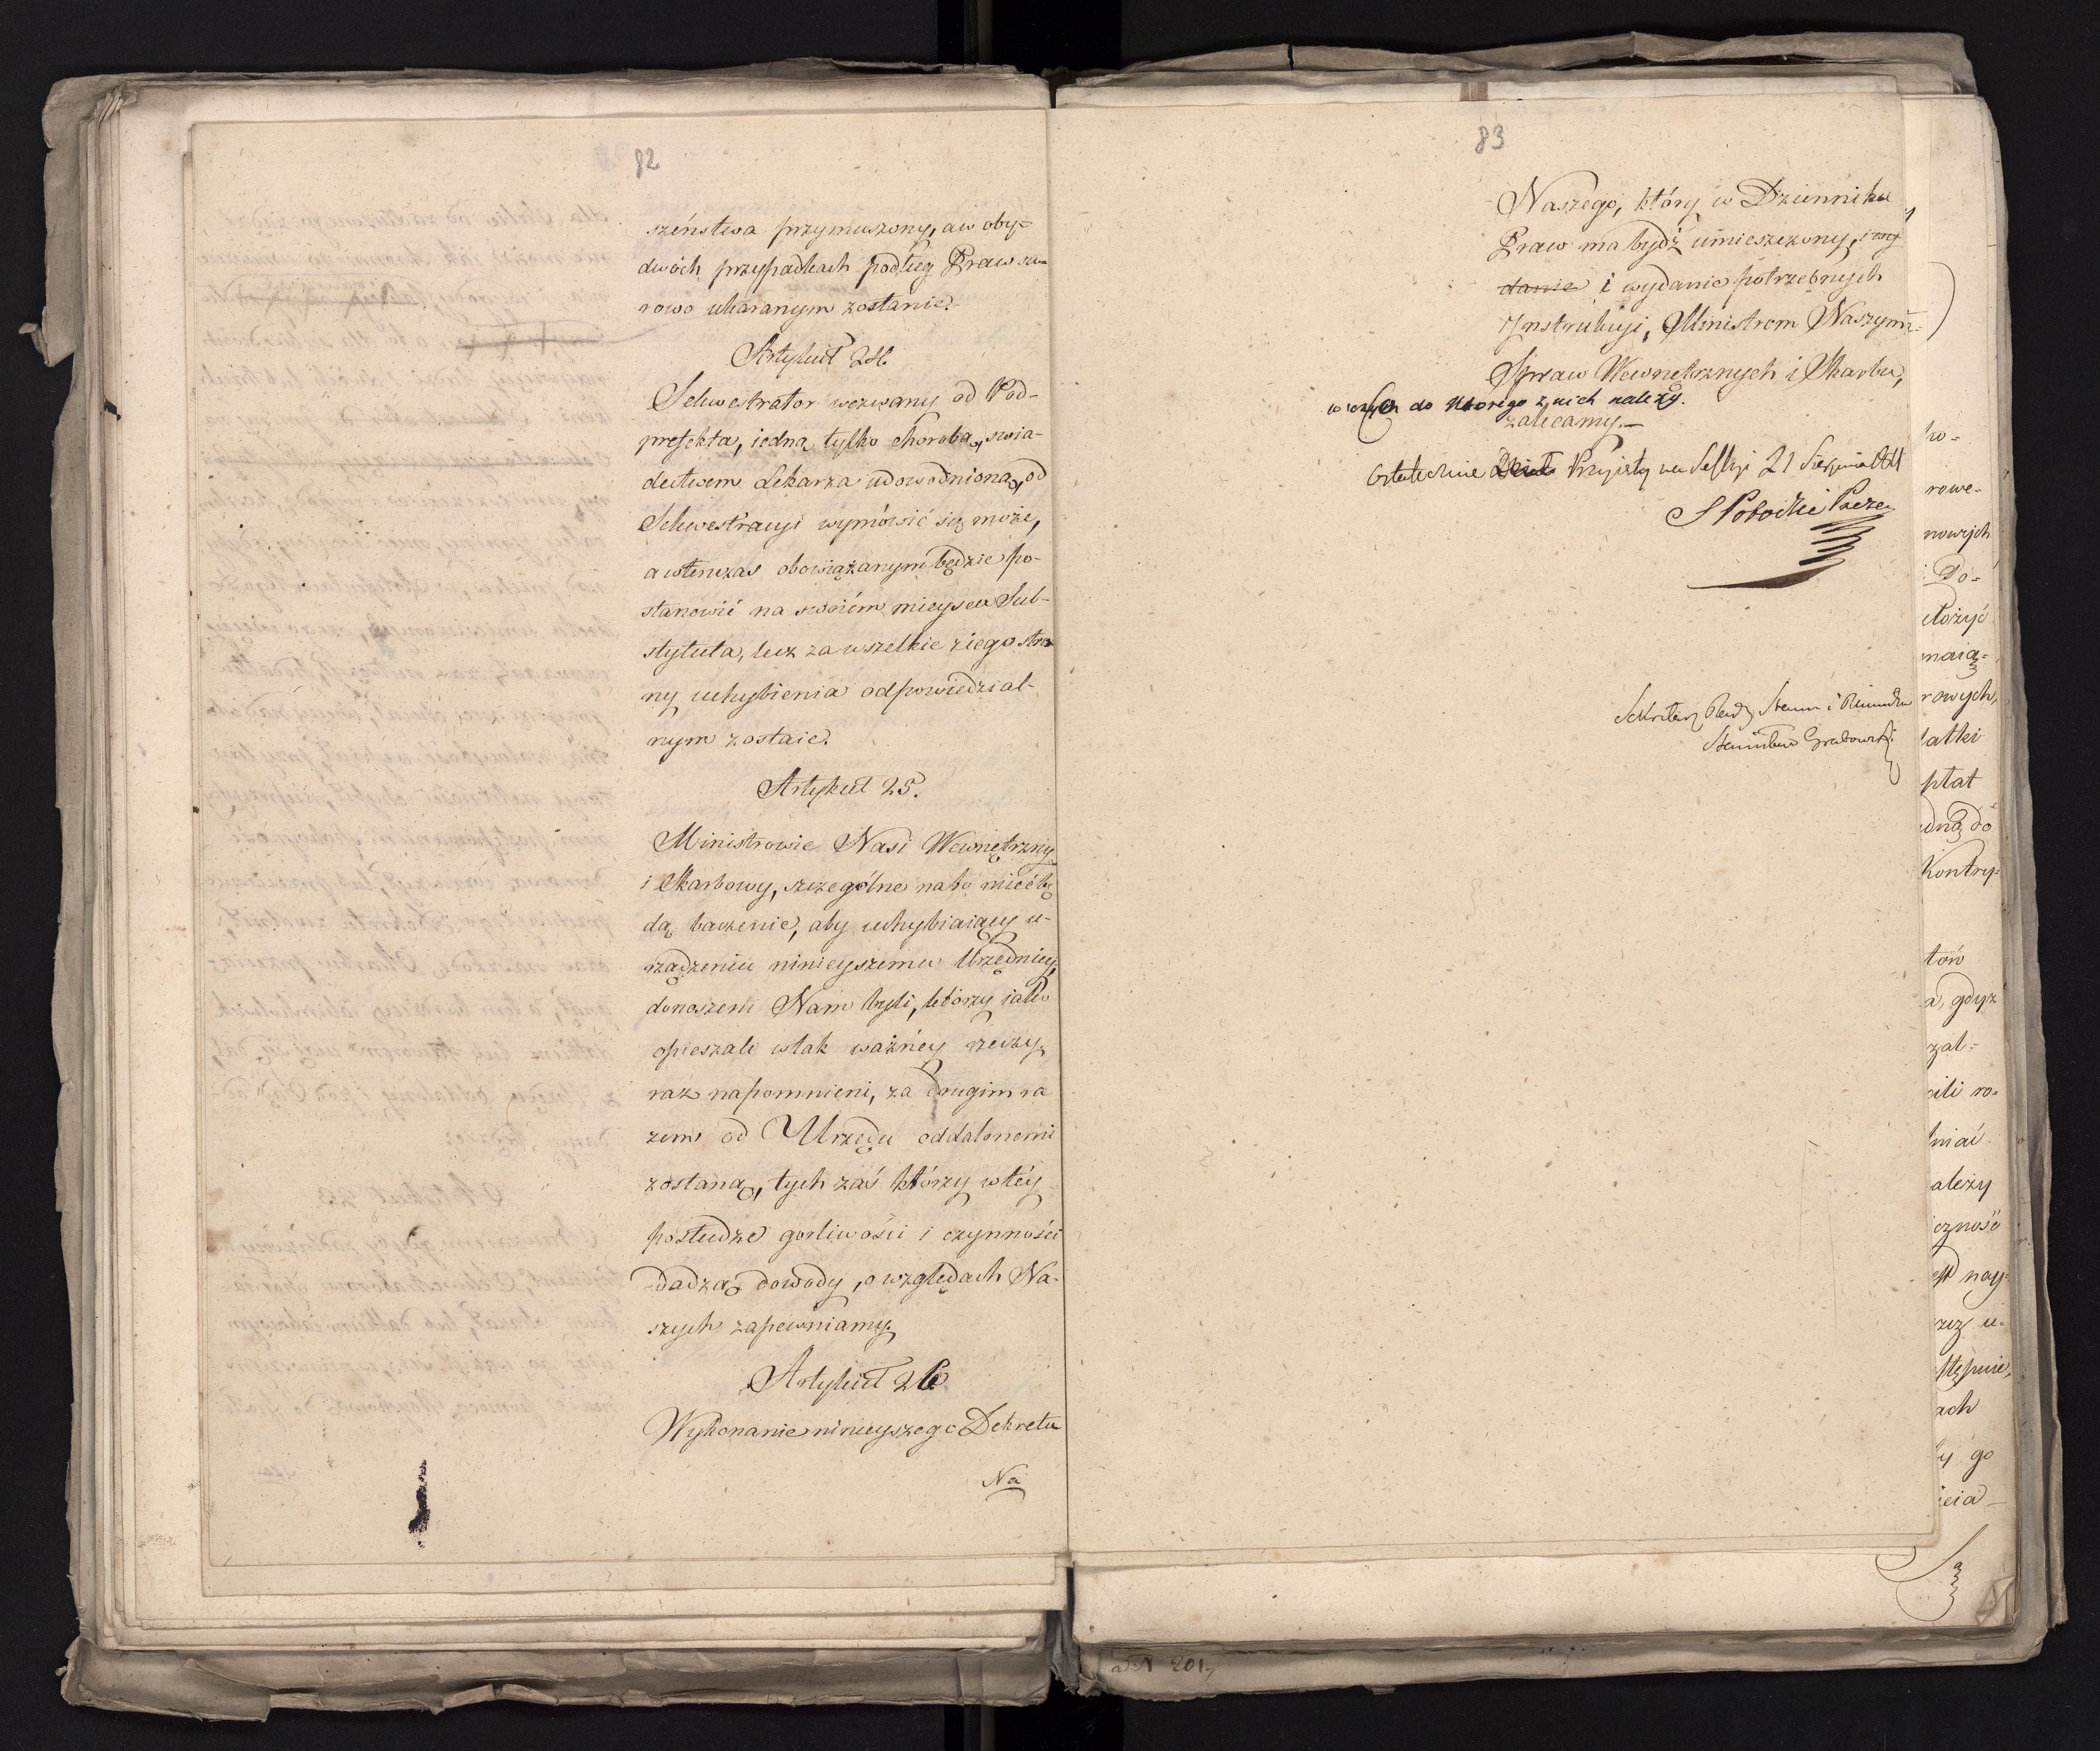 82
szeństwa przymuszony, a w oby=
dwóch przypadkach podług Praw su=
rowo ukaranym zostanie.
Artykuł 24.
Sekwestrator wezwany od Pod-
prefekta, iedną tylko chorobą, swia-
dectwem Lekarza udowodnioną, od
Sekwestracyi wymówić się może,
a wtenczas obowiązanym będzie po-
stanowić na swoiém mieyscu Sub-
stytuta, lecz za wszelkie z iego stro
ny uchybienia odpowiedzial-
nym zostaie.
Artykuł 25.
Ministrowie Nasi Wewnętrzny
i Skarbowy, szczególne na to mieć bę
dą baczenie, aby uchybiaiący u-
rządzeniu ninieyszemu Urzędnicy,
donoszeni Nam byli, którzy iako
opieszali w tak ważney rzeczy,
raz napomnieni, za drugim ra
zem od Urzędu oddalonemi
zostaną, tych zaś którzy w téy
posłudze gorliwości i czynności
dadzą dowody, o względach Na-
szych zapewniamy.
Artykuł 26
Wykonanie ninieyszego Dekretu
Na
83
Naszego, który w Dzienniku
Praw ma bydź umieszczony, i wy
danie i wydanie potrzebnych
Instrukcyi, Ministrom Naszym=
Spraw Wewnętrznych i Skarbu,
w czem do ktorego z nich należy.
zalecamy.—
Ostatecznie Przyięty na Sessyi 21 Sierpnia
S Potocki Prezes
Sekretarz Rady Stanu i Ministrów
Stanisław Grabowski
ro=
rowe-
nowych
i Do=
ełożyć
maią=
rowych,
łatki
płat
dną do
Kontry-
tów
a, gdyż
zal=
cili ro=
niać
ależy
czność
est nay=
rzez u-
stępnie,
ach
y go
icia—
201